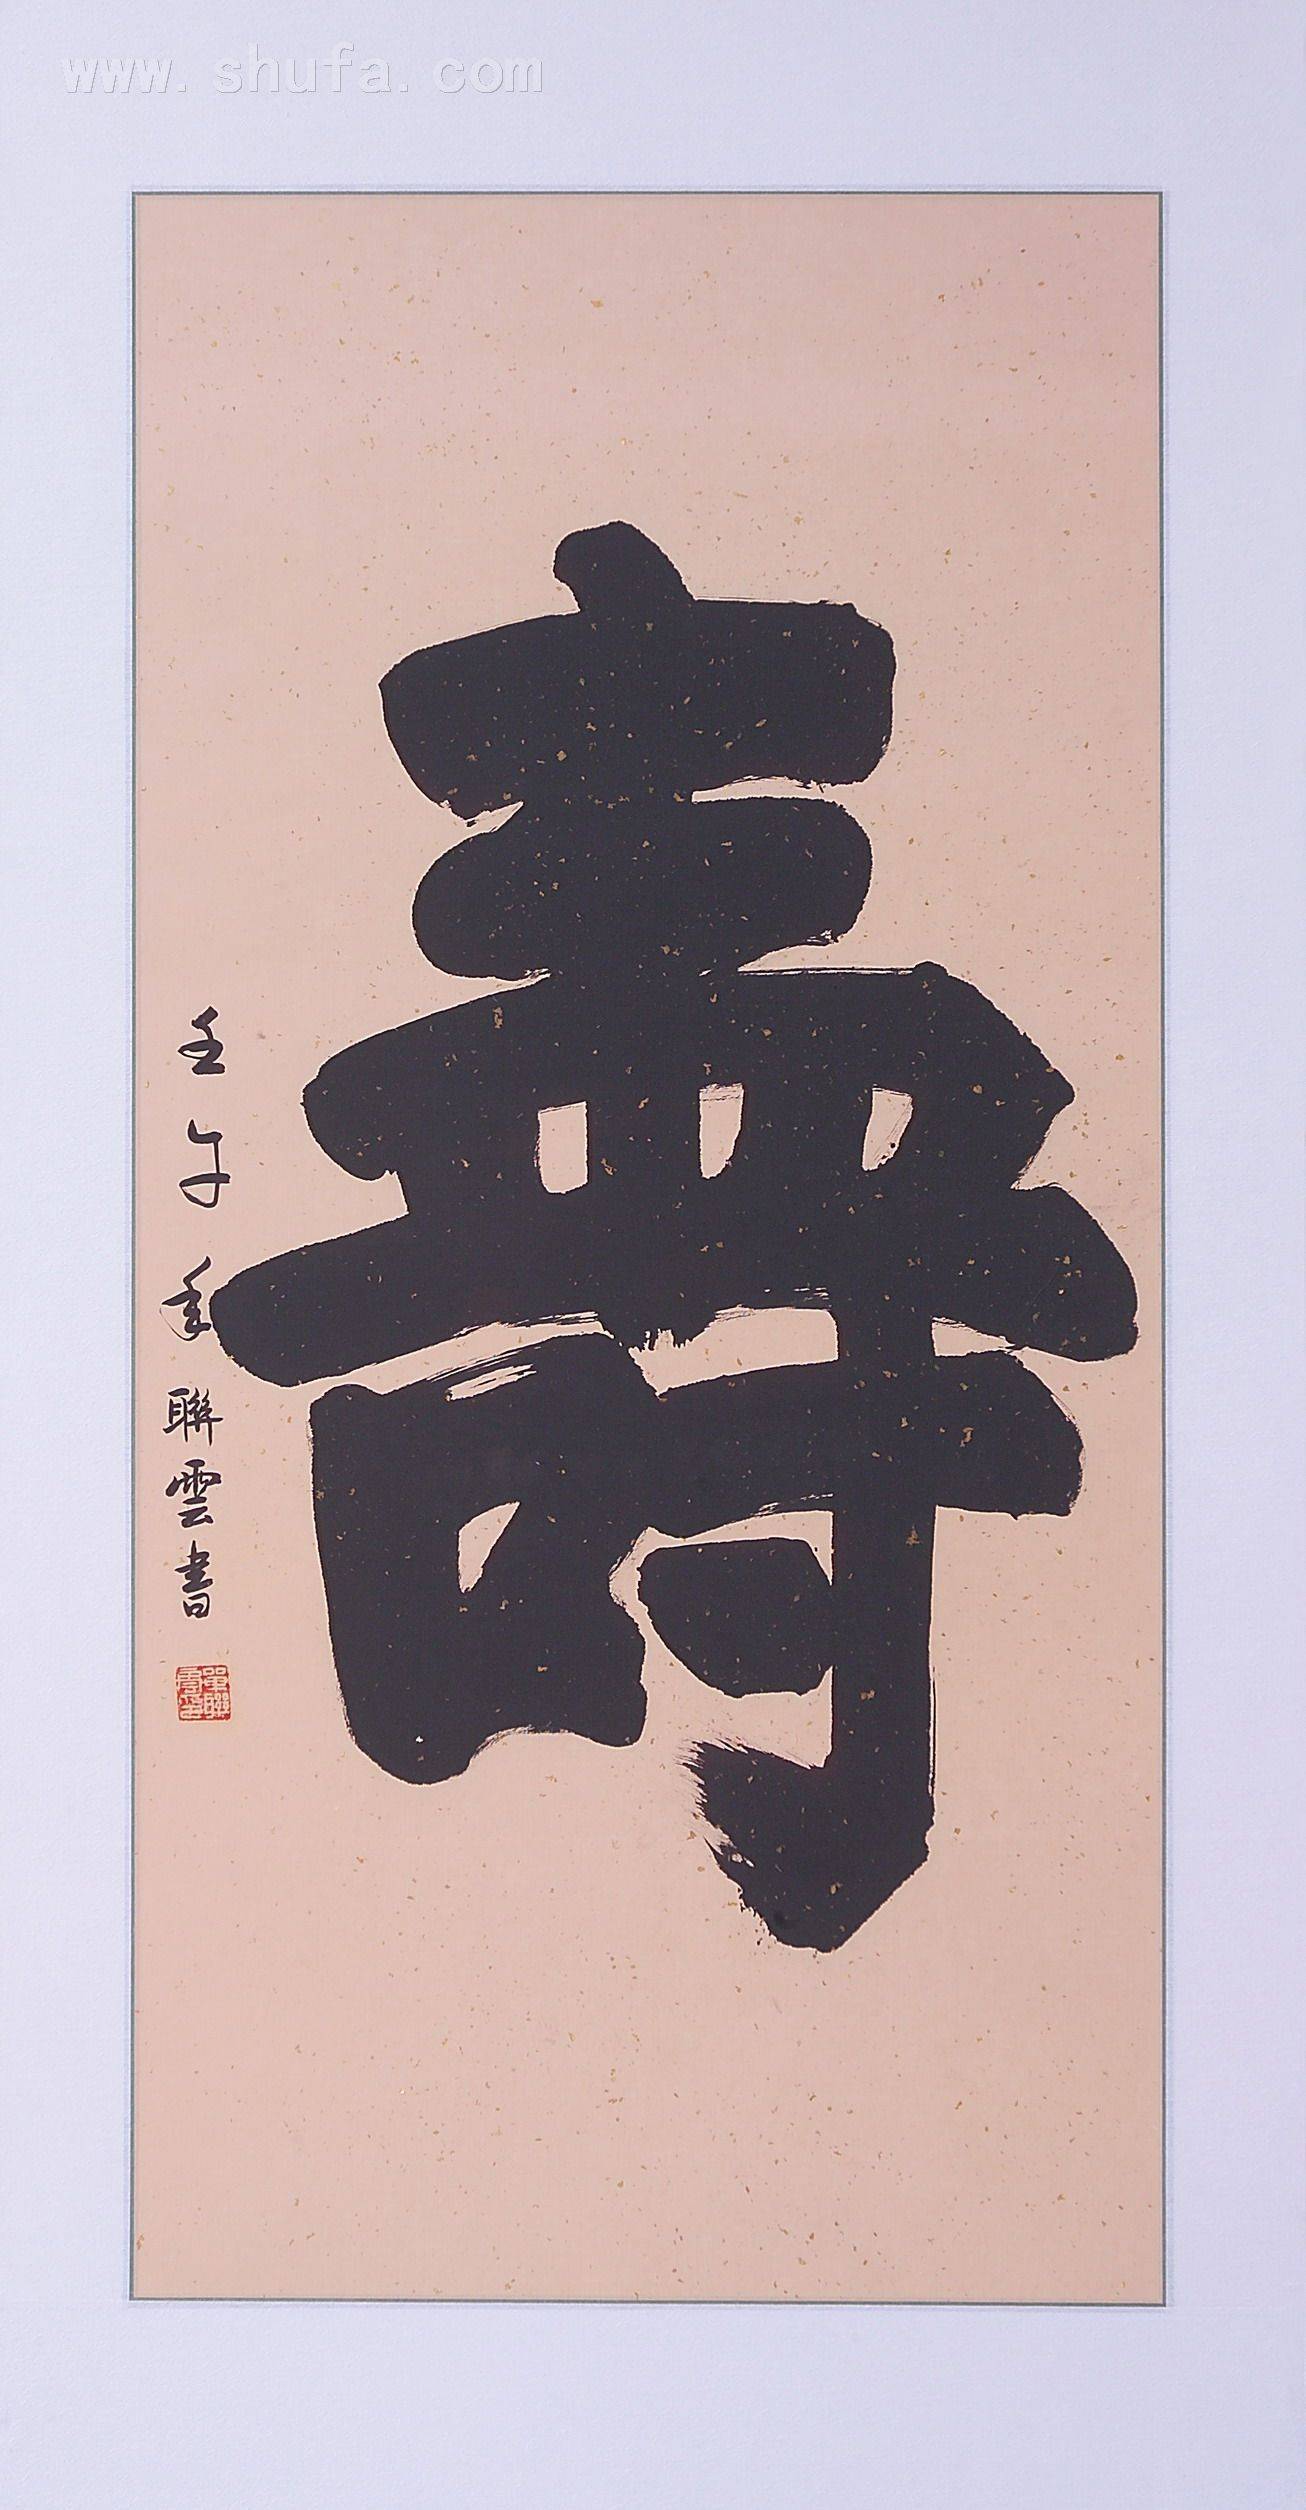 www.shufa.com
壽
壬午年聯雲書
單聯